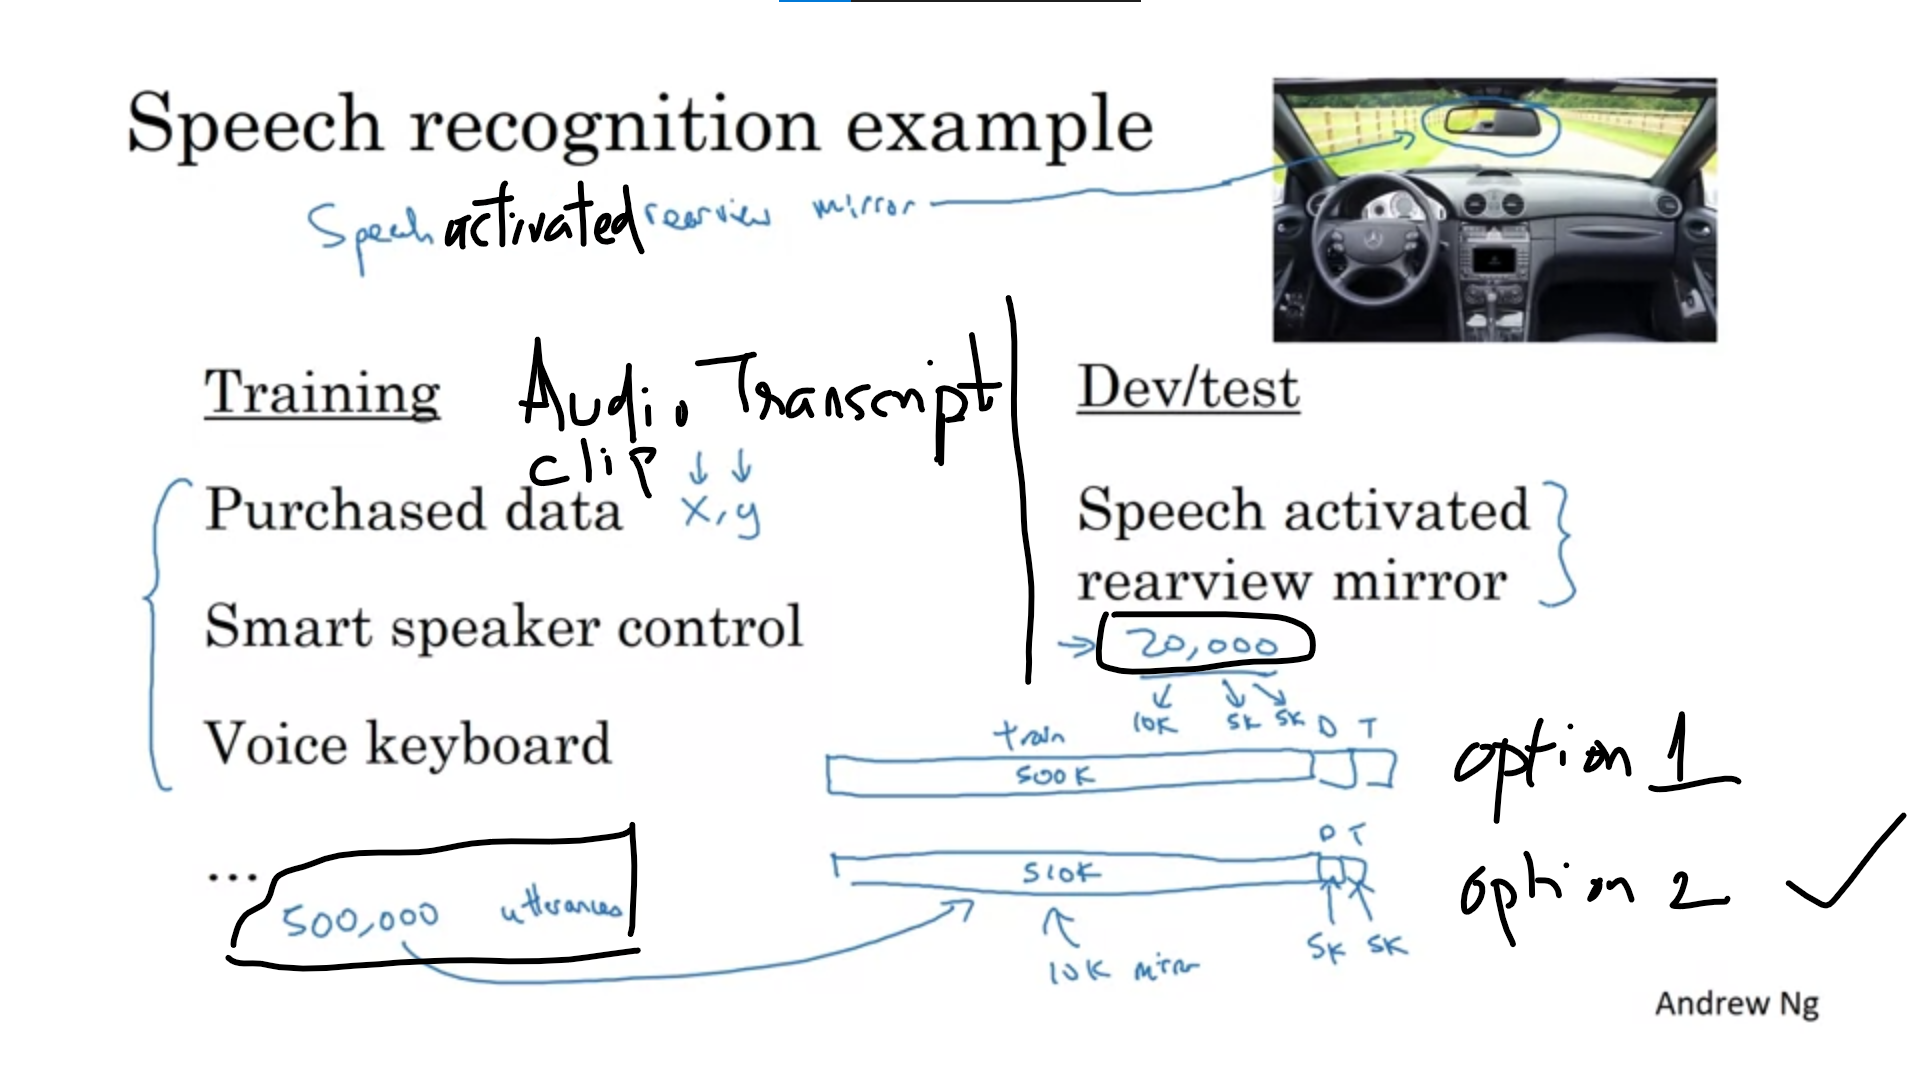 Speech recognition example
Speech activated rearview mirror
Training
Audio Transcript
clip
Purchased data x, y
Smart speaker control
Voice keyboard
...
500,000 utterances
Dev/test
Speech activated
rearview mirror
20,000
10K 5K 5K
train D T
500K
option 1
D T
510K
option 2
10K mirror
5K 5K
Andrew Ng